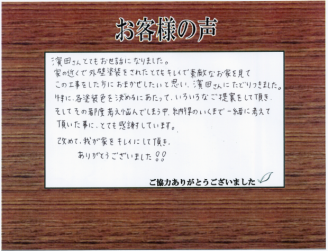 お客様の声
濱田さんとてもお世話になりました。
家の近くで外壁塗装をされたとてもキレイで素敵なお家を見て
この工事をした方におまかせしたいと思い、濱田さんにたどりつきました。
特に、各塗装色を決めるにあたって、いろいろなご提案をして頂き、
そしてその都度考え悩んでしまう中、納得のいくまで一緒に考えて
頂いた事に、とても感謝しています。
改めて、我が家をキレイにして頂き、
ありがとうございました!!
ご協力ありがとうございました